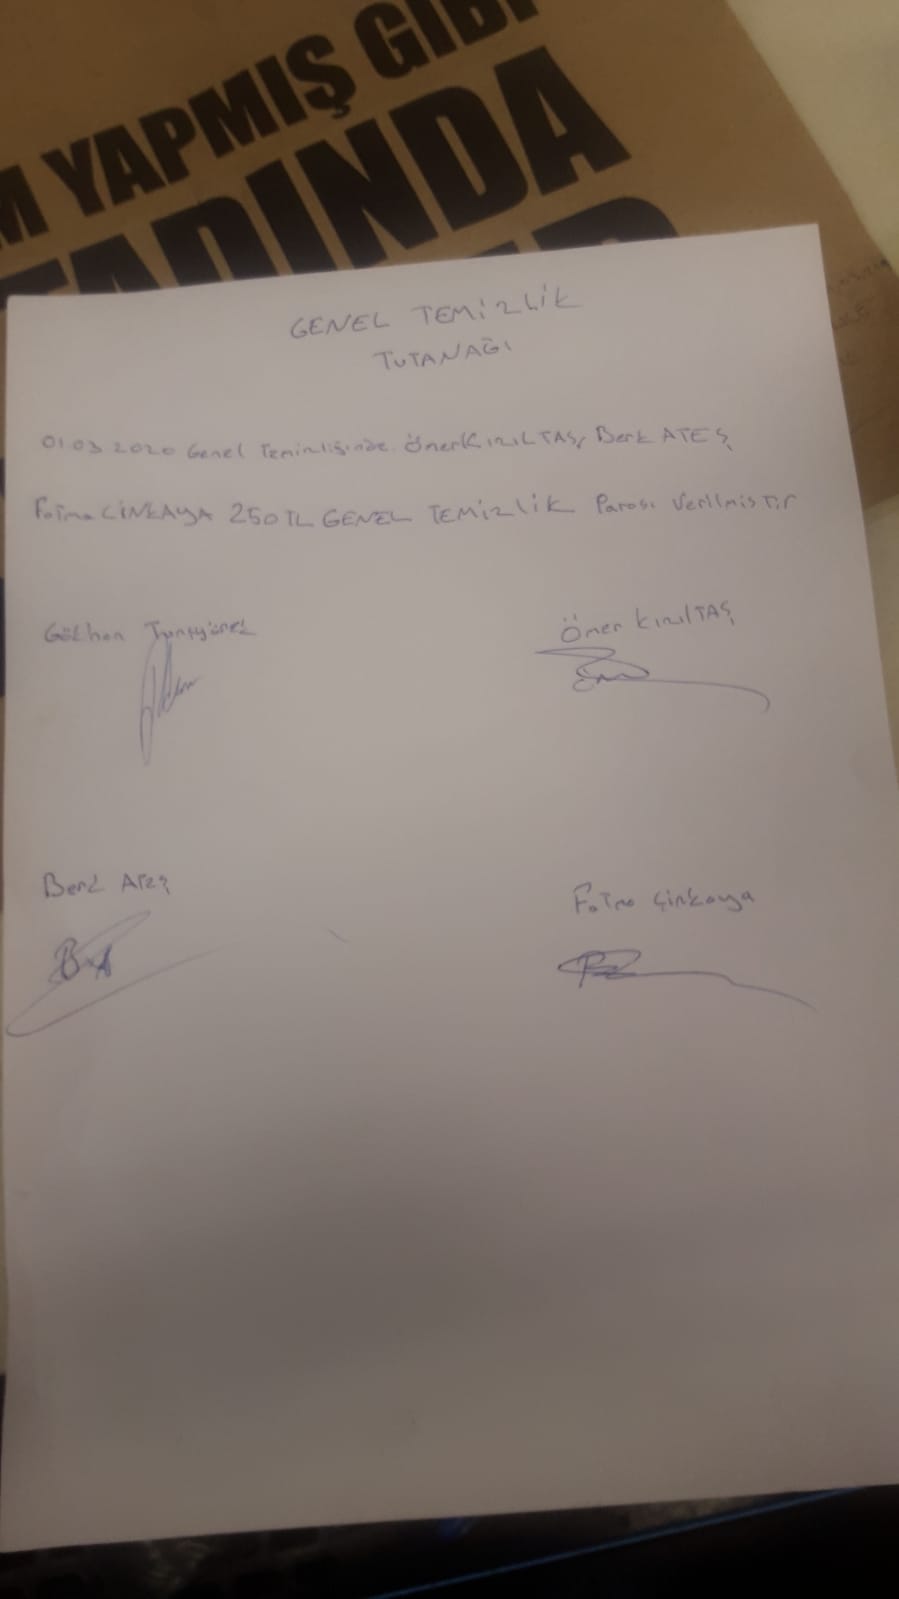 M YAPMIŞ GİBİ
TADINDA
GENEL TEMİZLİK
TUTANAĞI
01.03.2020 Genel Temizliğinde ÖnerKIZILTAŞ, Berk ATEŞ
Fatma ÇİNKAYA 250 TL GENEL TEMİZLİK Parası Verilmiştir
Gökhan
Ömer KızılTAŞ
Berk Ateş
Fatma Çinkaya